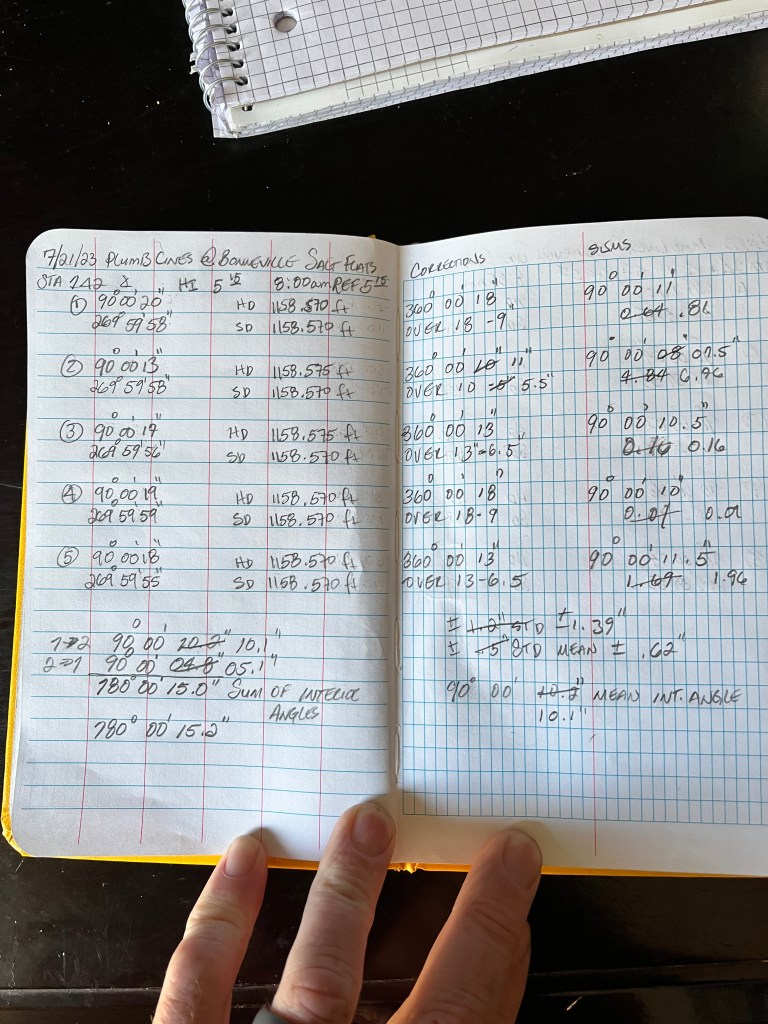 7/21/23 PLUMB LINES @ BONNEVILLE SALT FLATS
STA 1+2 & HI 5 15 8:00am REF 5 15
① 90° 00' 20" HD 1158.570 ft
269° 59' 58" SD 1158.570 ft
② 90° 00' 13" HD 1158.575 ft
269° 59' 58" SD 1158.570 ft
③ 90° 00' 17" HD 1158.575 ft
269° 59' 56" SD 1158.570 ft
④ 90° 00' 19" HD 1158.570 ft
269° 59' 59" SD 1158.570 ft
⑤ 90° 00' 18" HD 1158.570 ft
269° 59' 55" SD 1158.570 ft
1→2 90° 00' 10.2" 10.1"
2→1 90° 00' 04.8" 05.1"
180° 00' 15.0" SUM OF INTERIOR
ANGLES
180° 00' 15.2"
CORRECTIONS
360° 00' 18"
OVER 18 -9"
360° 00' 10" 11"
OVER 10 -5" 5.5"
360° 00' 13"
OVER 13" -6.5"
360° 00' 18"
OVER 18-9
360° 00' 13"
OVER 13-6.5
90° 00' 11"
0.64 .81
90° 00' 08 07.5"
4.84 6.76
90° 00' 10.5"
0.16 0.16
90° 00' 10"
0.01
90° 00' 11.5"
1.69 1.96
± 1.2" STD ±1.39"
± .5" STD MEAN ± .62"
90° 00' 10.2" MEAN INT. ANGLE
10.1"